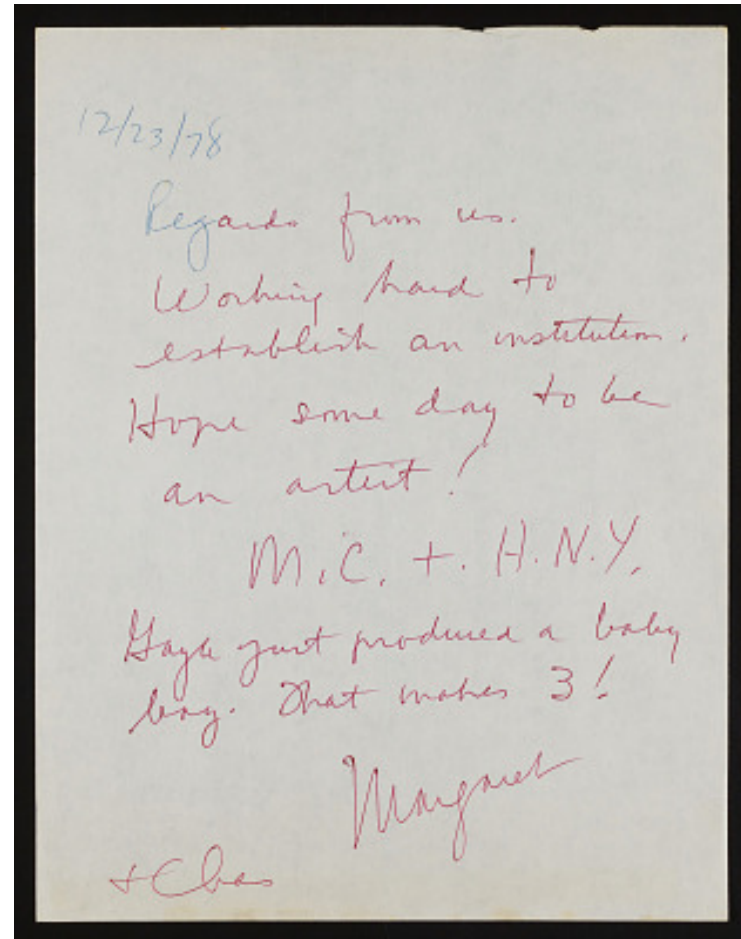 12/23/78
Regards from us.
Working hard to
establish an institution.
Hope some day to be
an artist!
M.C. + . H.N.Y.
just produced a baby
boy. That makes 3!
Margaret
+ Chas